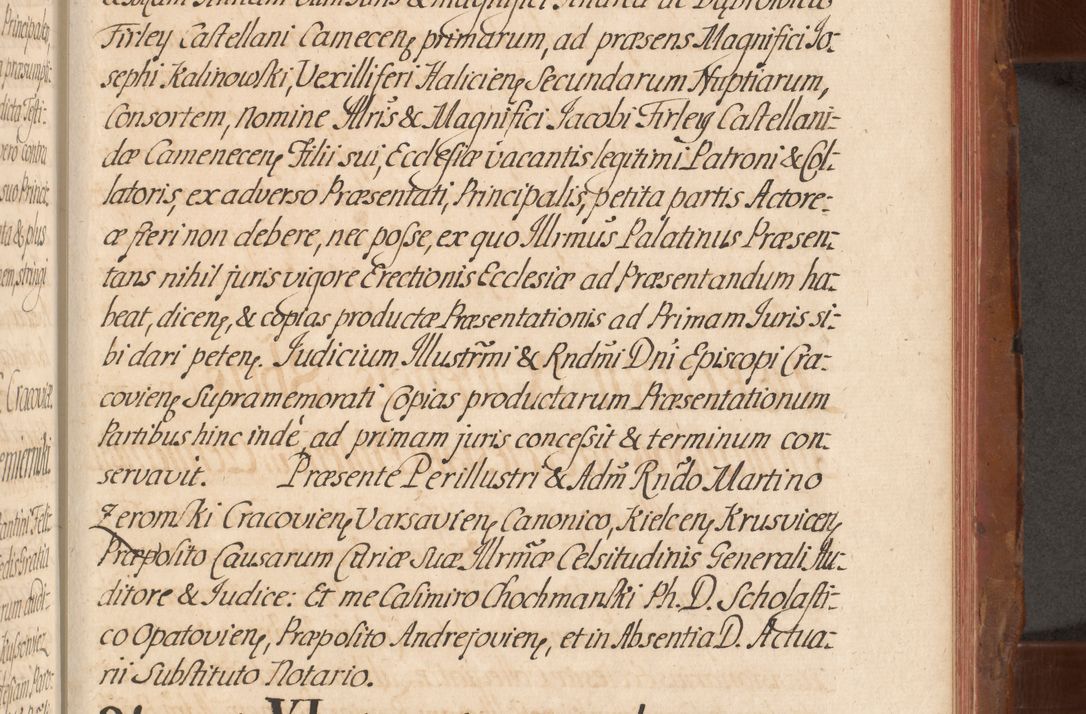 Firley Castellani Cameceną primarum, ad præsens Magnifici Jo-
sephi Kalinowski, Vexilliferi Halicieną Secundarum Nuptiarum,
Consortem, nomine Illris & Magnifici Jacobi Firley Castellani-
dæ Cameneceną Filii sui, Ecclesiæ vacantis legitimi Patroni & Col-
latoris, ex adverso Præsentati, Principalis, petita partis Actore-
æ fieri non debere, nec posse, ex quo Illrmus Palatinus Præsen-
tans nihil juris vigore Erectionis Ecclesiæ ad Præsentandum ha-
beat, diceną, & copias productæ Præsentationis ad Primam Juris si-
bi dari peteną. Judicium Illustrm̃i & Rndm̃i Dn̄i Episcopi Cra-
covieną Supramemorati Copias productarum Præsentationum
Partibus hinc indè, ad primam juris concessit & terminum con-
servavit. Præsente Perillustri & Adm̃ Rñdo Martino
Zeromski Cracovieną Varsavieną Canonico, Kielceną Krusviceną
Præposito Causarum Curiæ Suæ Illrm̃æ Celsitudinis Generali Au-
ditore & Judice: Et me Casimiro Chochmanski Ph. D. Scholasti-
co Opatovieną, Præposito Andrejovieną, et in Absentia D. Actua-
rii Substituto Notario.